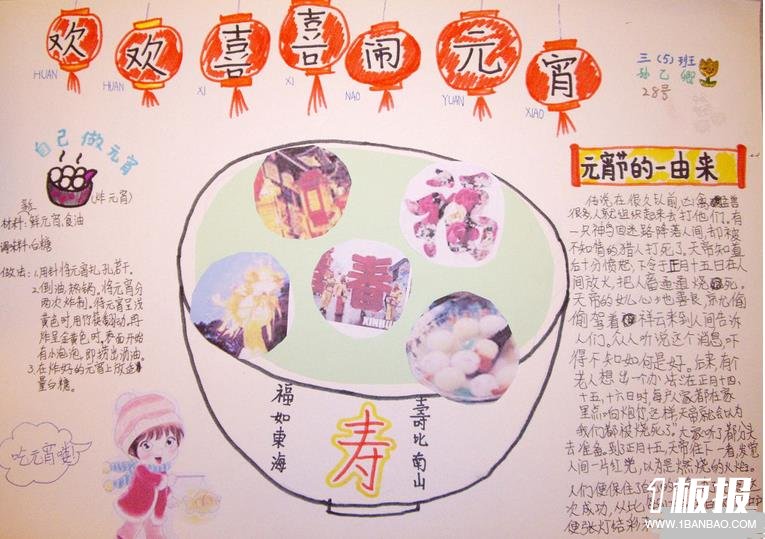 欢欢喜喜闹元宵
HUAN HUAN XI XI NAO YUAN XIAO
三(5)班
28号
自己做元宵
(炸元宵)
材料:鲜元宵,食油
调味料:白糖
做法:1.用针将元宵扎孔若干。
2.倒油,热锅。将元宵分
两次炸制。待元宵呈浅
黄色时,用竹筷翻动,再
炸至金黄色时,表面开始
有小泡泡,即捞出沥油。
3.在炸好的元宵上放适
量白糖。
吃元宵喽!
春
福如東海
寿
壽比南山
元宵节的一由来
传说在很久以前,凶禽
很多,人就组织起来去打他们,有
一只神鸟因迷路降落人间,却被
不知情的猎人打死了。天帝知道
后十分愤怒,下令于正月十五日在人
间放火,把人畜通通烧死。
天帝的女儿心地善良,就偷
偷驾着祥云来到人间告诉
人们。众人听说这个消息,吓
得不知如何是好。后来,有个
老人想出一个办法:在正月十四、
十五、十六日时,每户人家都在家
里点响炮竹,这样,天帝就会以为
我们都被烧死了。大家听了都分头
去准备。到了正月十五,天帝往下一看,发觉
人间一片红光,以为是燃烧的火焰。
人们便保住了
次成功,从此
便张灯结彩
1板报
WWW.1BANBAO.COM